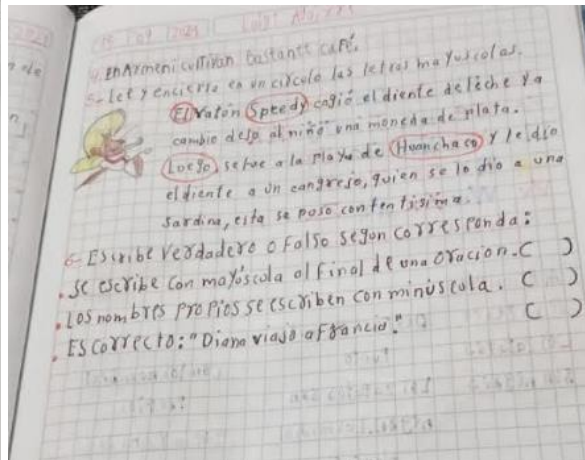 4. En Armeni cultivan bastante café.
5- Lee y encierra en un circulo las letras mayusculas.
El raton Speedy cogió el diente de leche y a
cambio dejo al niño una moneda de plata.
Luego, se fue a la playa de Huanchaco y le dio
el diente a un cangrejo, quien se lo dio a una
sardina, esta se puso contentisima.
6- Escribe verdadero o Falso segun corresponda:
. se escribe con mayúscula al final de una oracion. ( )
. Los nombres propios se escriben con minúscula. ( )
. Es correcto: "Diana viajó a francia." ( )